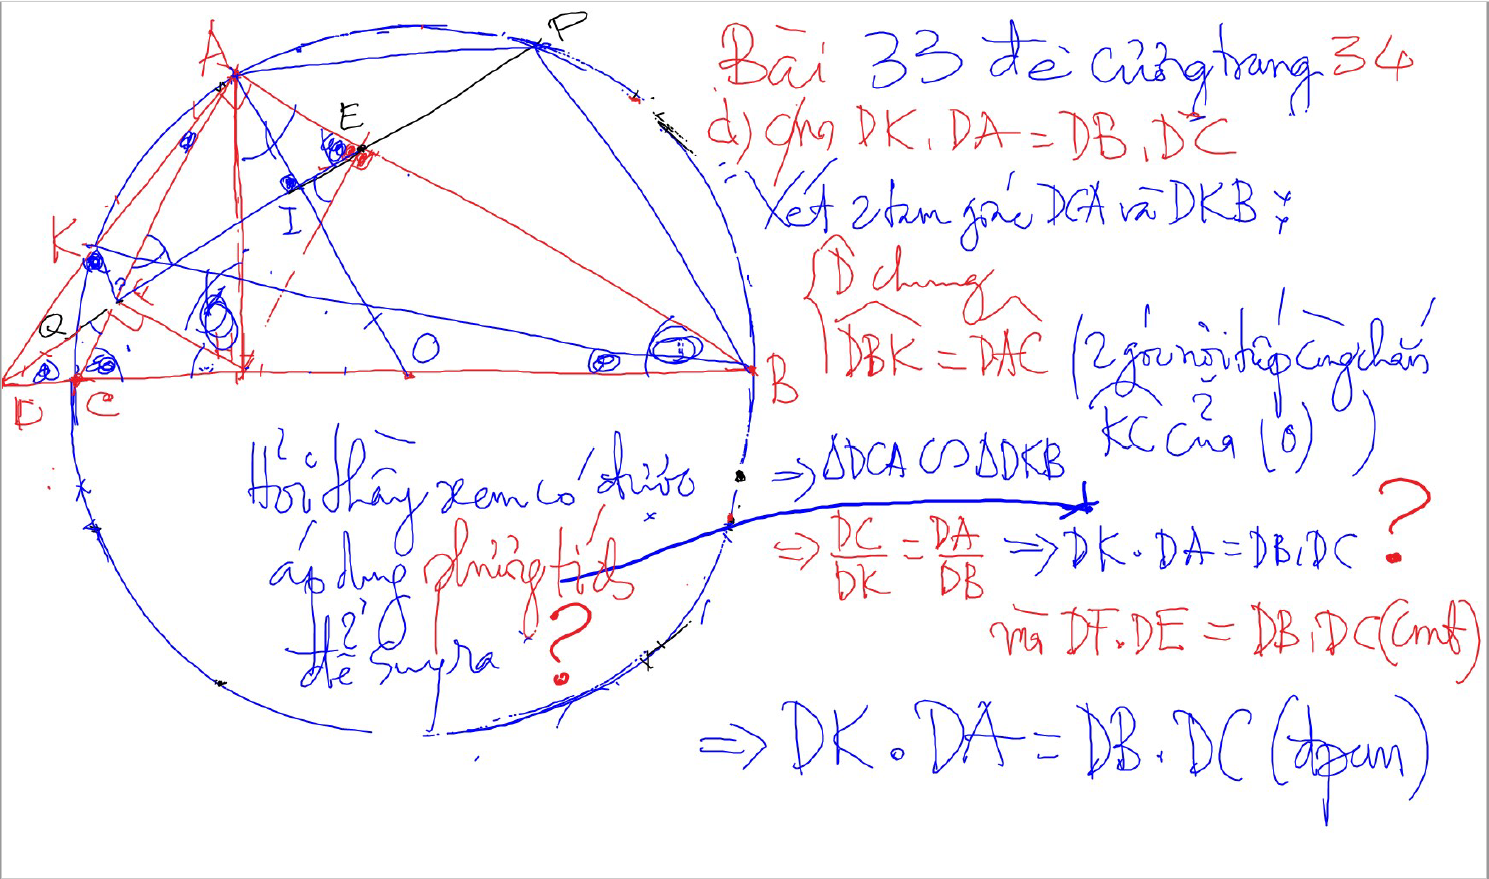 Bài 33 đề cương trang 34
d) cm DK.DA = DB.DC
Xét 2 tam giác DCA và DKB:
D chung
DBK = DAC (2 góc nội tiếp cùng chắn
KC của (O))
=> ΔDCA ∽ ΔDKB
=> DC/DK = DA/DB => DK.DA = DB.DC ?
mà DF.DE = DB.DC (cmt)
=> DK.DA = DB.DC (đpcm)
Hỏi thầy xem có được
áp dụng phương tích
để suy ra ?
A
P
E
I
K
F
Q
O
D
C
H
B